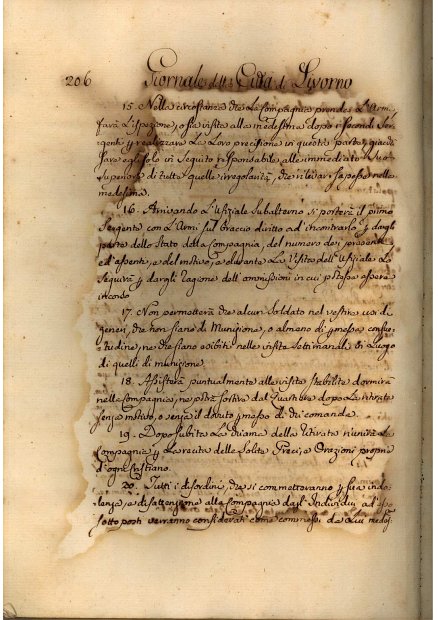 206 Giornale della Città di Livorno
15. Nella circostanza che la Compagnia prende l'Armi
farà l'ispezione, o sia visita alla medesima dopo i secondi Ser-
genti, e realizzare la loro precisione in questa parte, giacchè
sarà egli solo in seguito responsabile all'immediato suo
Superiore di tutte quelle irregolarità, che rilevar si possa nella
medesima.
16. Arrivando l'Ufiziale Subalterno si porterà il primo
Sergente con l'Armi sul braccio diritto ad incontrarlo p dargli
parte dello Stato della Compagnia, del numero dei presenti
ed assenti, e del motivo, e durante la Visita dell'Ufiziale lo
seguirà p dargli ragione dell'ammissioni in cui potesse essere
incorso
17. Non permetterà che alcun Soldato nel vestire usi di
generi, che non siano di Munizione, o almeno di
tudine, ne che siano esibiti nelle visite Settimanali in luogo
di quelli di munizione.
18. Assisterà puntualmente alle visite stabilite dormirà
nella Compagnia, ne potrà sortire dal Quartiere dopo la ritirata
senza motivo, o senza il dovuto permesso di chi comanda.
19. Dopo subito la chiama della ritirata riunirà la
Compagnia p la recita delle solite Preci, e Orazioni proprie
d'ogni Cristiano.
20. Tutti i disordini, che si commetteranno p sua indo-
lenza, e disattenzione alla Compagnia dagl'Individui ad esso
sottoposti verranno considerati come commessi da lui medes-